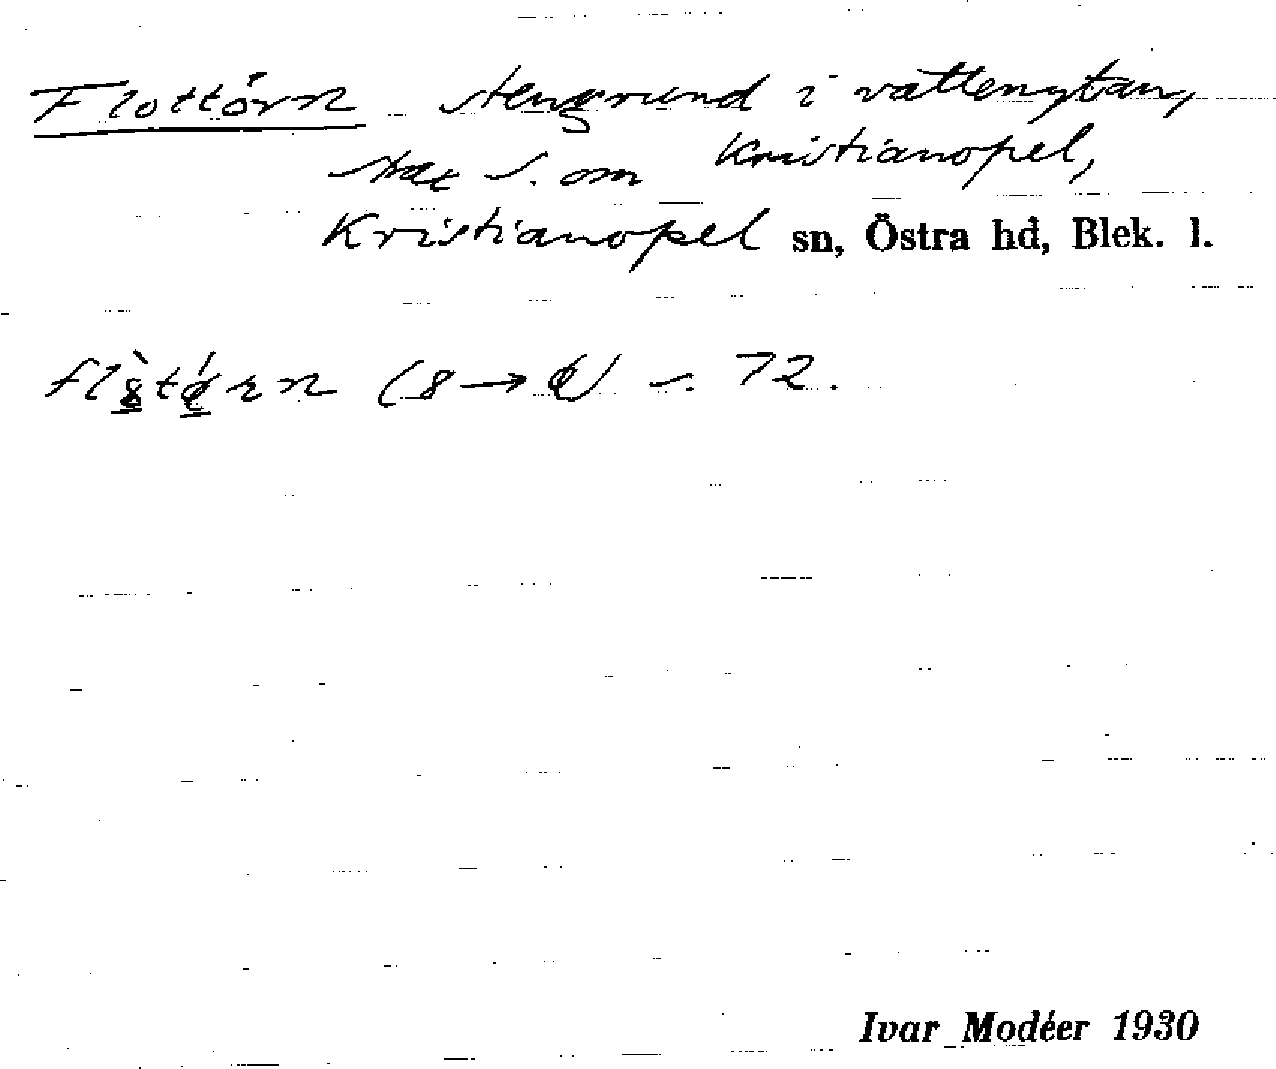 Flottörn stengrund i vattenytan,
strax S. om Kristianopel,
Kristianopel sn, Östra hd, Blek. l.
72.
Ivar Modéer 1930